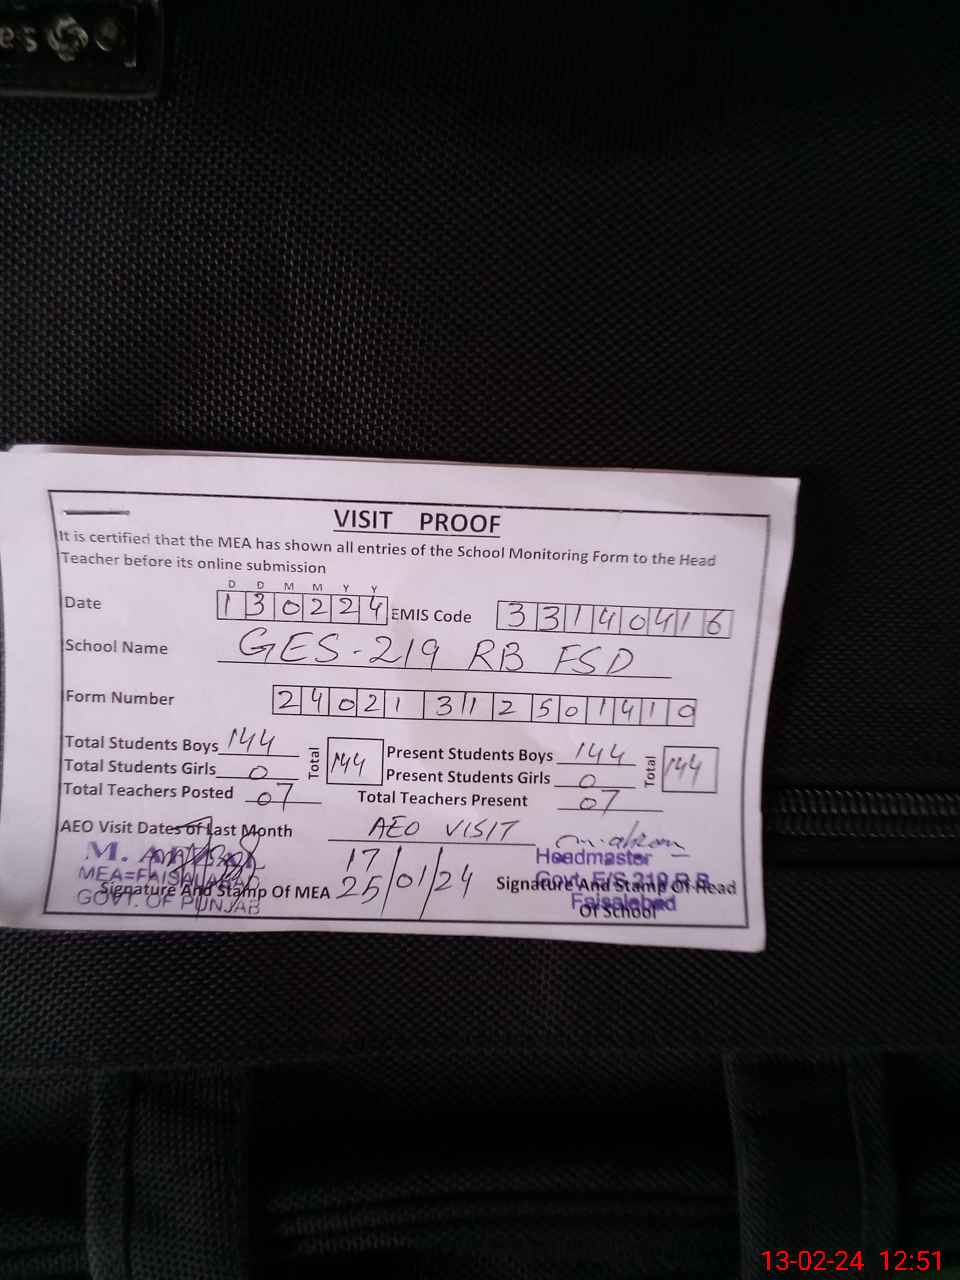 VISIT PROOF
It is certified that the MEA has shown all entries of the School Monitoring Form to the Head
Teacher before its online submission
D D M M Y Y
Date 130224 EMIS Code 33140416
School Name GES-219 RB FSD
Form Number 24021 31 2501410
Total Students Boys 144 Total 144 Present Students Boys 144 Total 144
Total Students Girls 0 Present Students Girls 0
Total Teachers Posted 07 Total Teachers Present 07
AEO Visit Dates of Last Month AEO VISIT
17
25/01/24
M.
MEA=FAISALABAD
GOVT. OF PUNJAB
Signature And Stamp Of MEA
Headmaster
Govt. E/S 219 R.B.
Faisalabad
Signature And Stamp Of Head
Of School
13-02-24 12:51